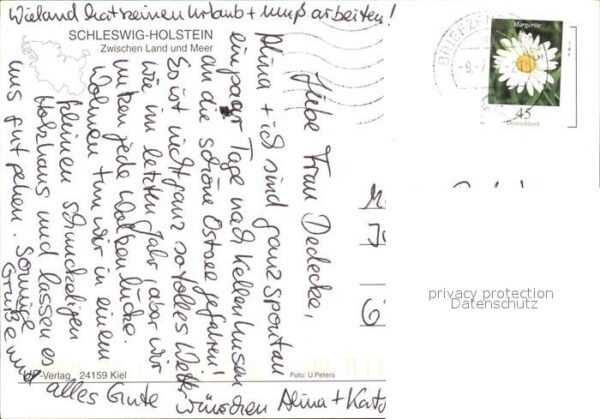 Wieland hat keinen Urlaub + muß arbeiten!
SCHLESWIG-HOLSTEIN
Zwischen Land und Meer
Liebe Frau Dedecke,
Alina + ich sind ganz spontan
ein paar Tage nach Kellenhusen
an die schöne Ostsee gefahren!
Es ist nicht ganz so tolles Wetter
wie im letzten Jahr, aber wir
nutzen jede Wolkenlücke.
Wohnen tun wir in einem
kleinen schnuckeligen
Holzhaus und lassen es
uns gut gehen. Sonnige
Grüße und
alles Gute wünschen Alina + Kat
Margerite
45
Deutschland
BRIEFZEN
privacy protection
Datenschutz
-Verlag 24159 Kiel
Foto: U.Peters